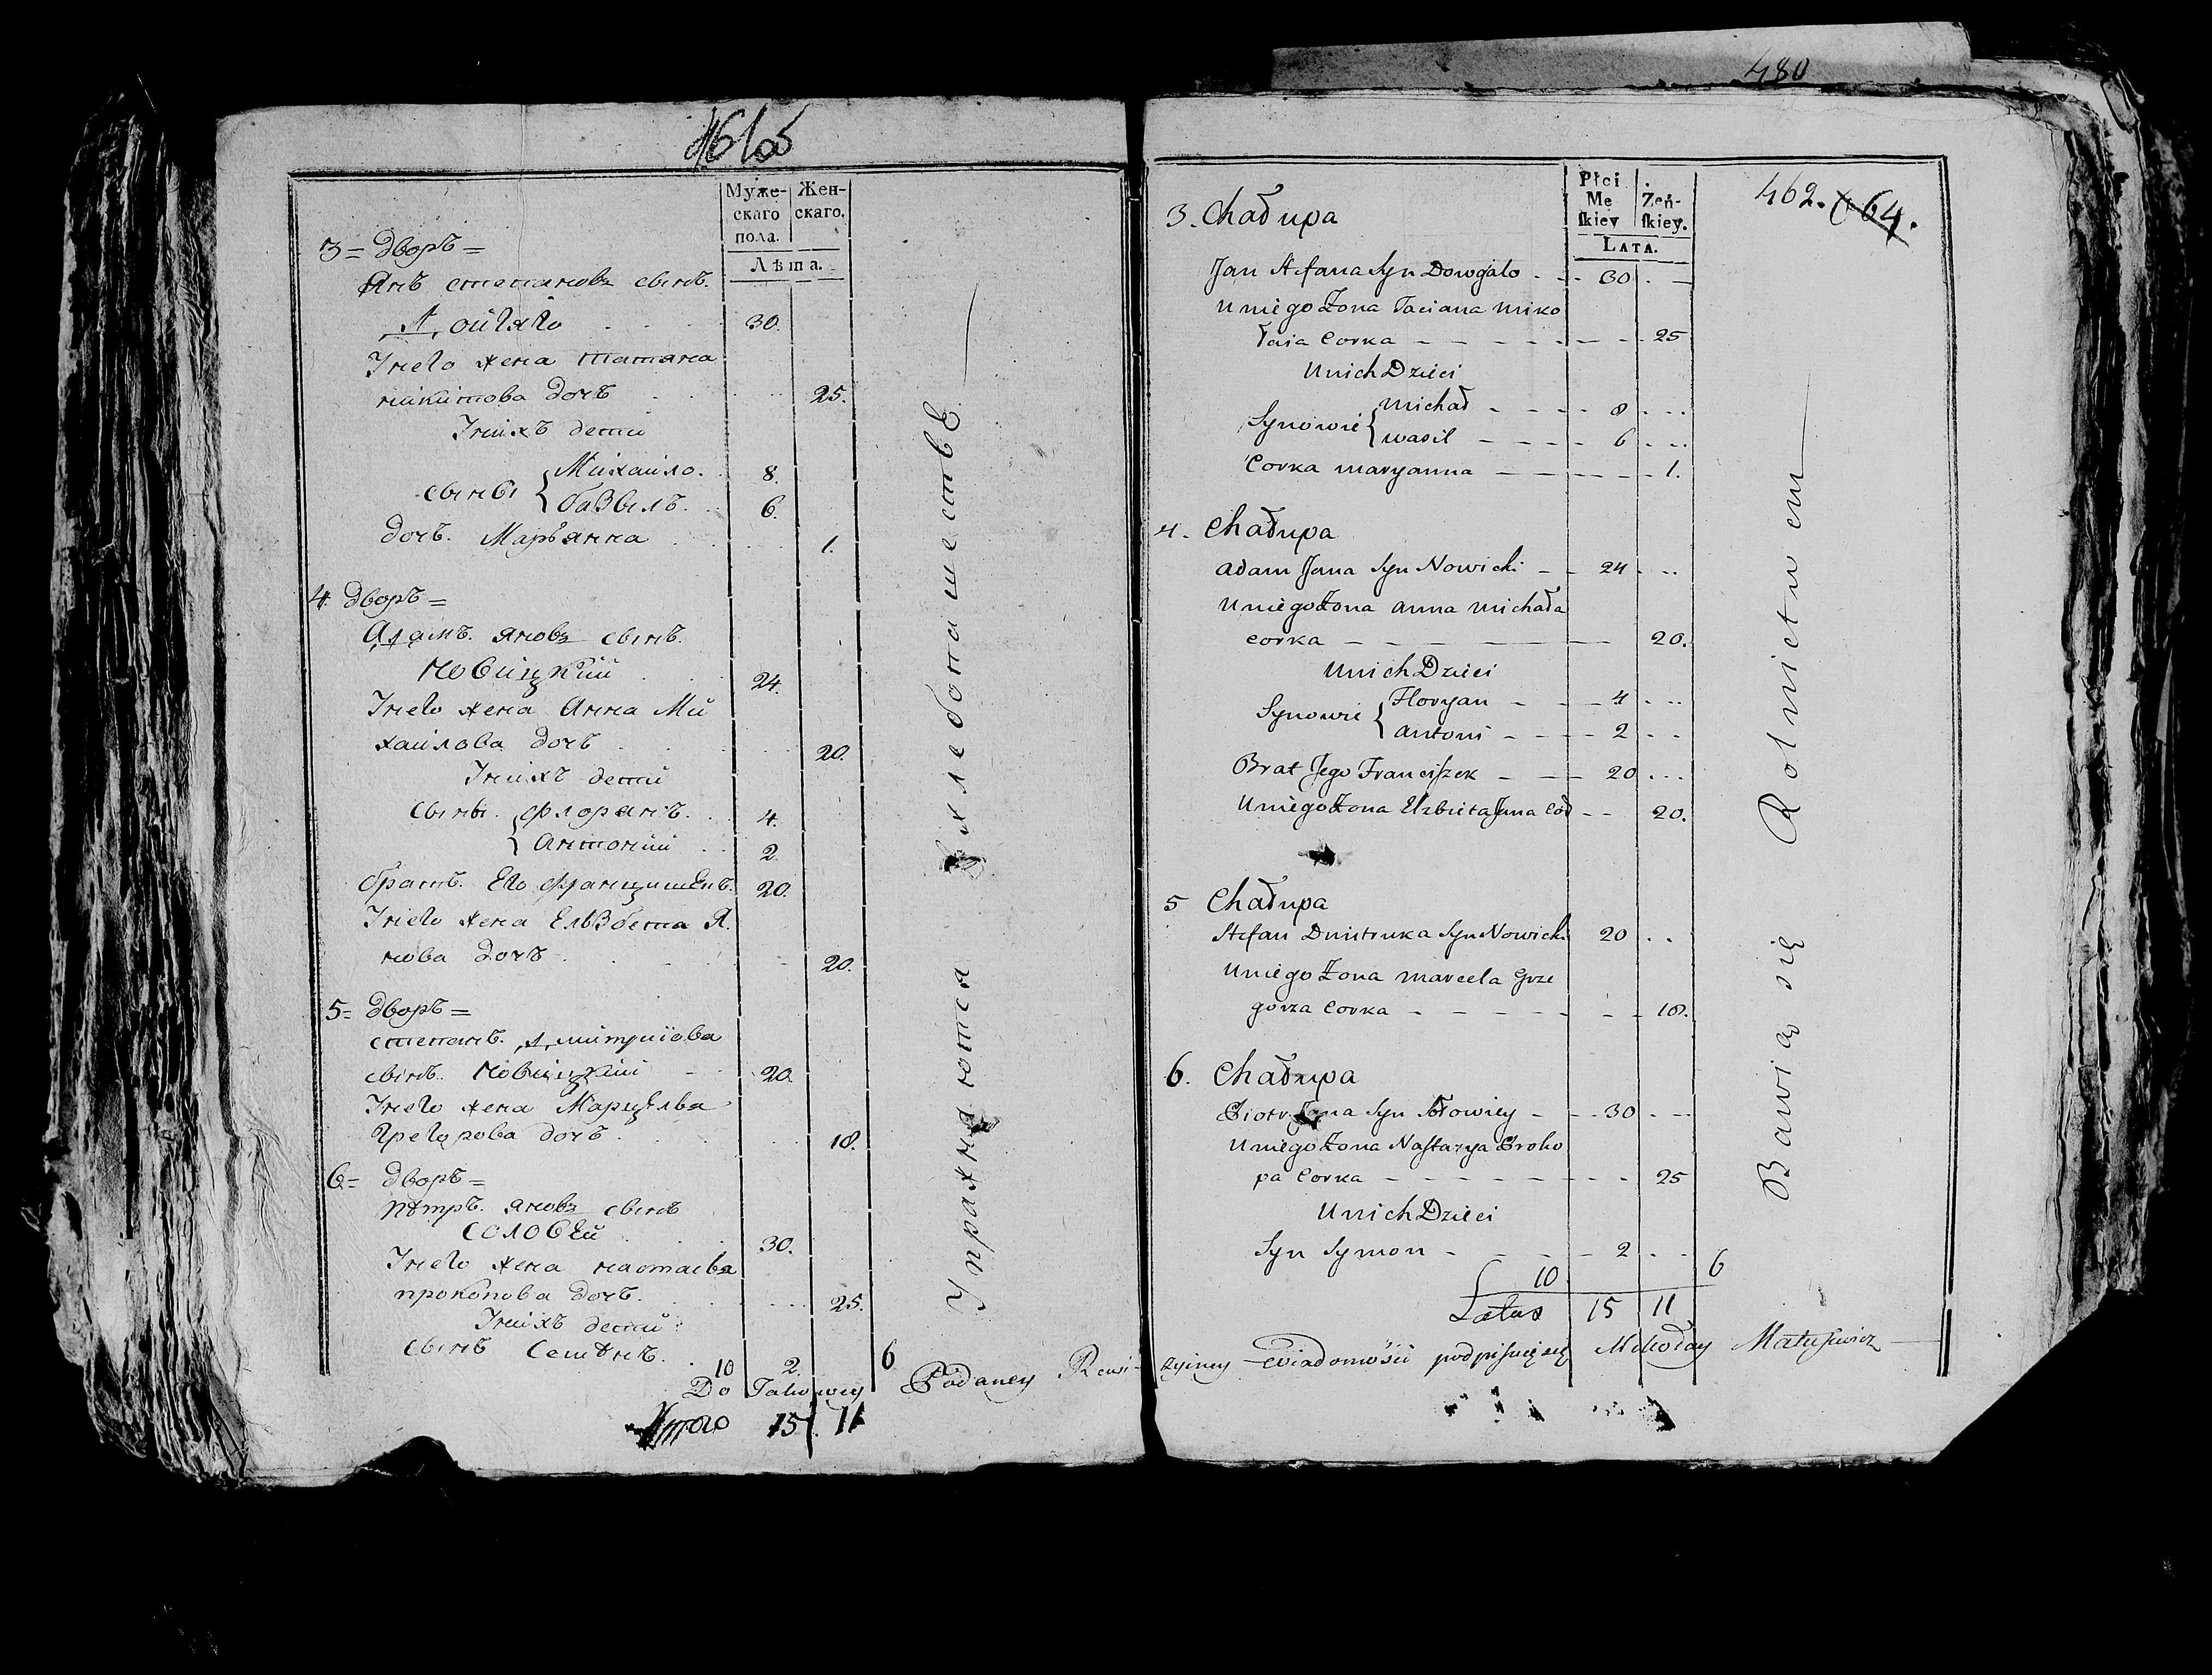 Муже-
скаго
пола.
Жен-
скаго.
Лѣта.
3 = Дворъ =
Янъ степановъ сынъ
Довгяло 30.
Унего жена татяна
микитова дочъ 25.
Унихъ дети
сыны { Михайло. 8.
базыль. 6.
дочъ. Марьянна 1.
4. Дворъ =
Адамъ. яновъ сынъ.
новицкий 24.
Унего жена Анна Ми
хаилова дочъ 20.
Унихъ дети
сыны. { флорянъ. 4.
Антоний 2.
братъ. Его францишекъ. 20.
Унего жена Ельзбета Я.
нова дочъ 20.
5 = Дворъ =
степанъ. Дмитриова
сынъ. новицкий 20.
Унего жена Марцелва
Грегорова дочъ. 18.
6 = Дворъ =
петръ. яновъ сынъ
соловей 30.
Унего жена настасья
прокопова дочъ. 25.
Унихъ дети
сынъ Семенъ. 2.
10 6
Итого 15 11
Упражняются
хлебопашествЕ
480
462. 64.
Płci
Mę
ſkiey
Żeń-
ſkiey.
LATA.
3. Chałupa
Jan Stefana Syn Dowgało 30
U niego Żona Taciana miko
łaia Corka 25
U nich Dzieci
Synowie { michał 8
wasil 6
Corka maryanna 1.
4. Chałupa
adam Jana Syn Nowicki 24
U niego Żona anna michała
corka 20.
U nich Dzieci
Synowie { Floryan 4
antoni 2
Brat Jego Franciſzek 20
U niego Żona Elzbieta Jana Cór 20.
5 Chałupa
Stefan Dmitruka Syn Nowicki 20
U niego Żona marcela Grze
gorza Corka 18.
6. Chałupa
Piotr Jana Syn Sołowiey 30
U niego Żona Naſtazya Proko
pa Corka 25
U nich Dzieci
Syn Symon 2
10 6
Latus 15 11
Bawią się Rolnictwem
Do Takowey Podaney Rewi-zyiney Wiadomości podpiſuię się Mikołay Matuſewicz